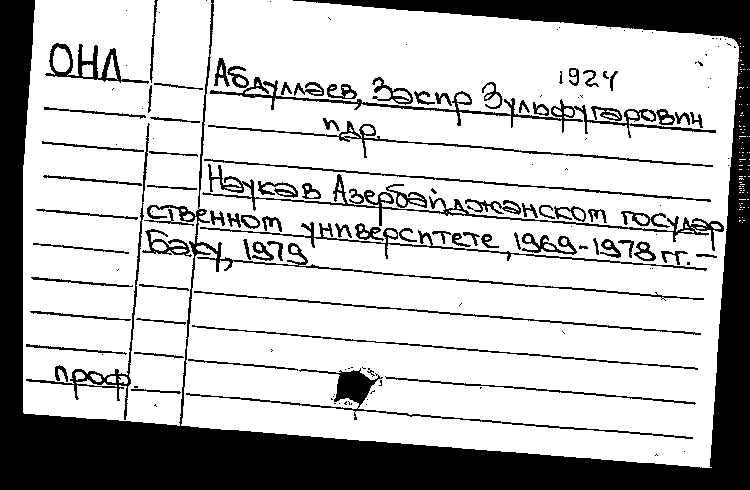 ОНЛ
1924
Абдуллаев, Закир Зульфугарович
пдр.
Наука в Азербайджанском государ
ственном университете, 1969-1978 гг. –
Баку, 1979.
проф.